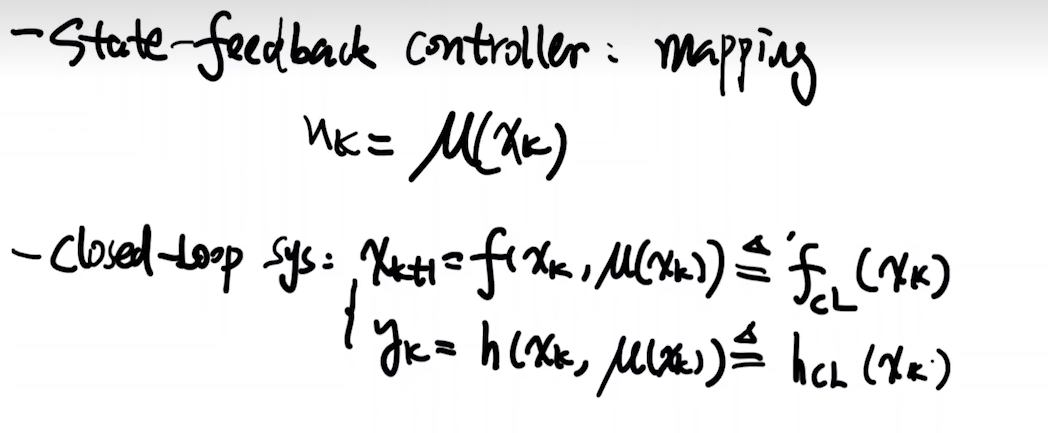 - State-feedback controller : mapping
u_k = μ(x_k)
- Closed-Loop sys: { x_{k+1} = f(x_k, μ(x_k)) ≜ f_{CL}(x_k)
y_k = h(x_k, μ(x_k)) ≜ h_{CL}(x_k)